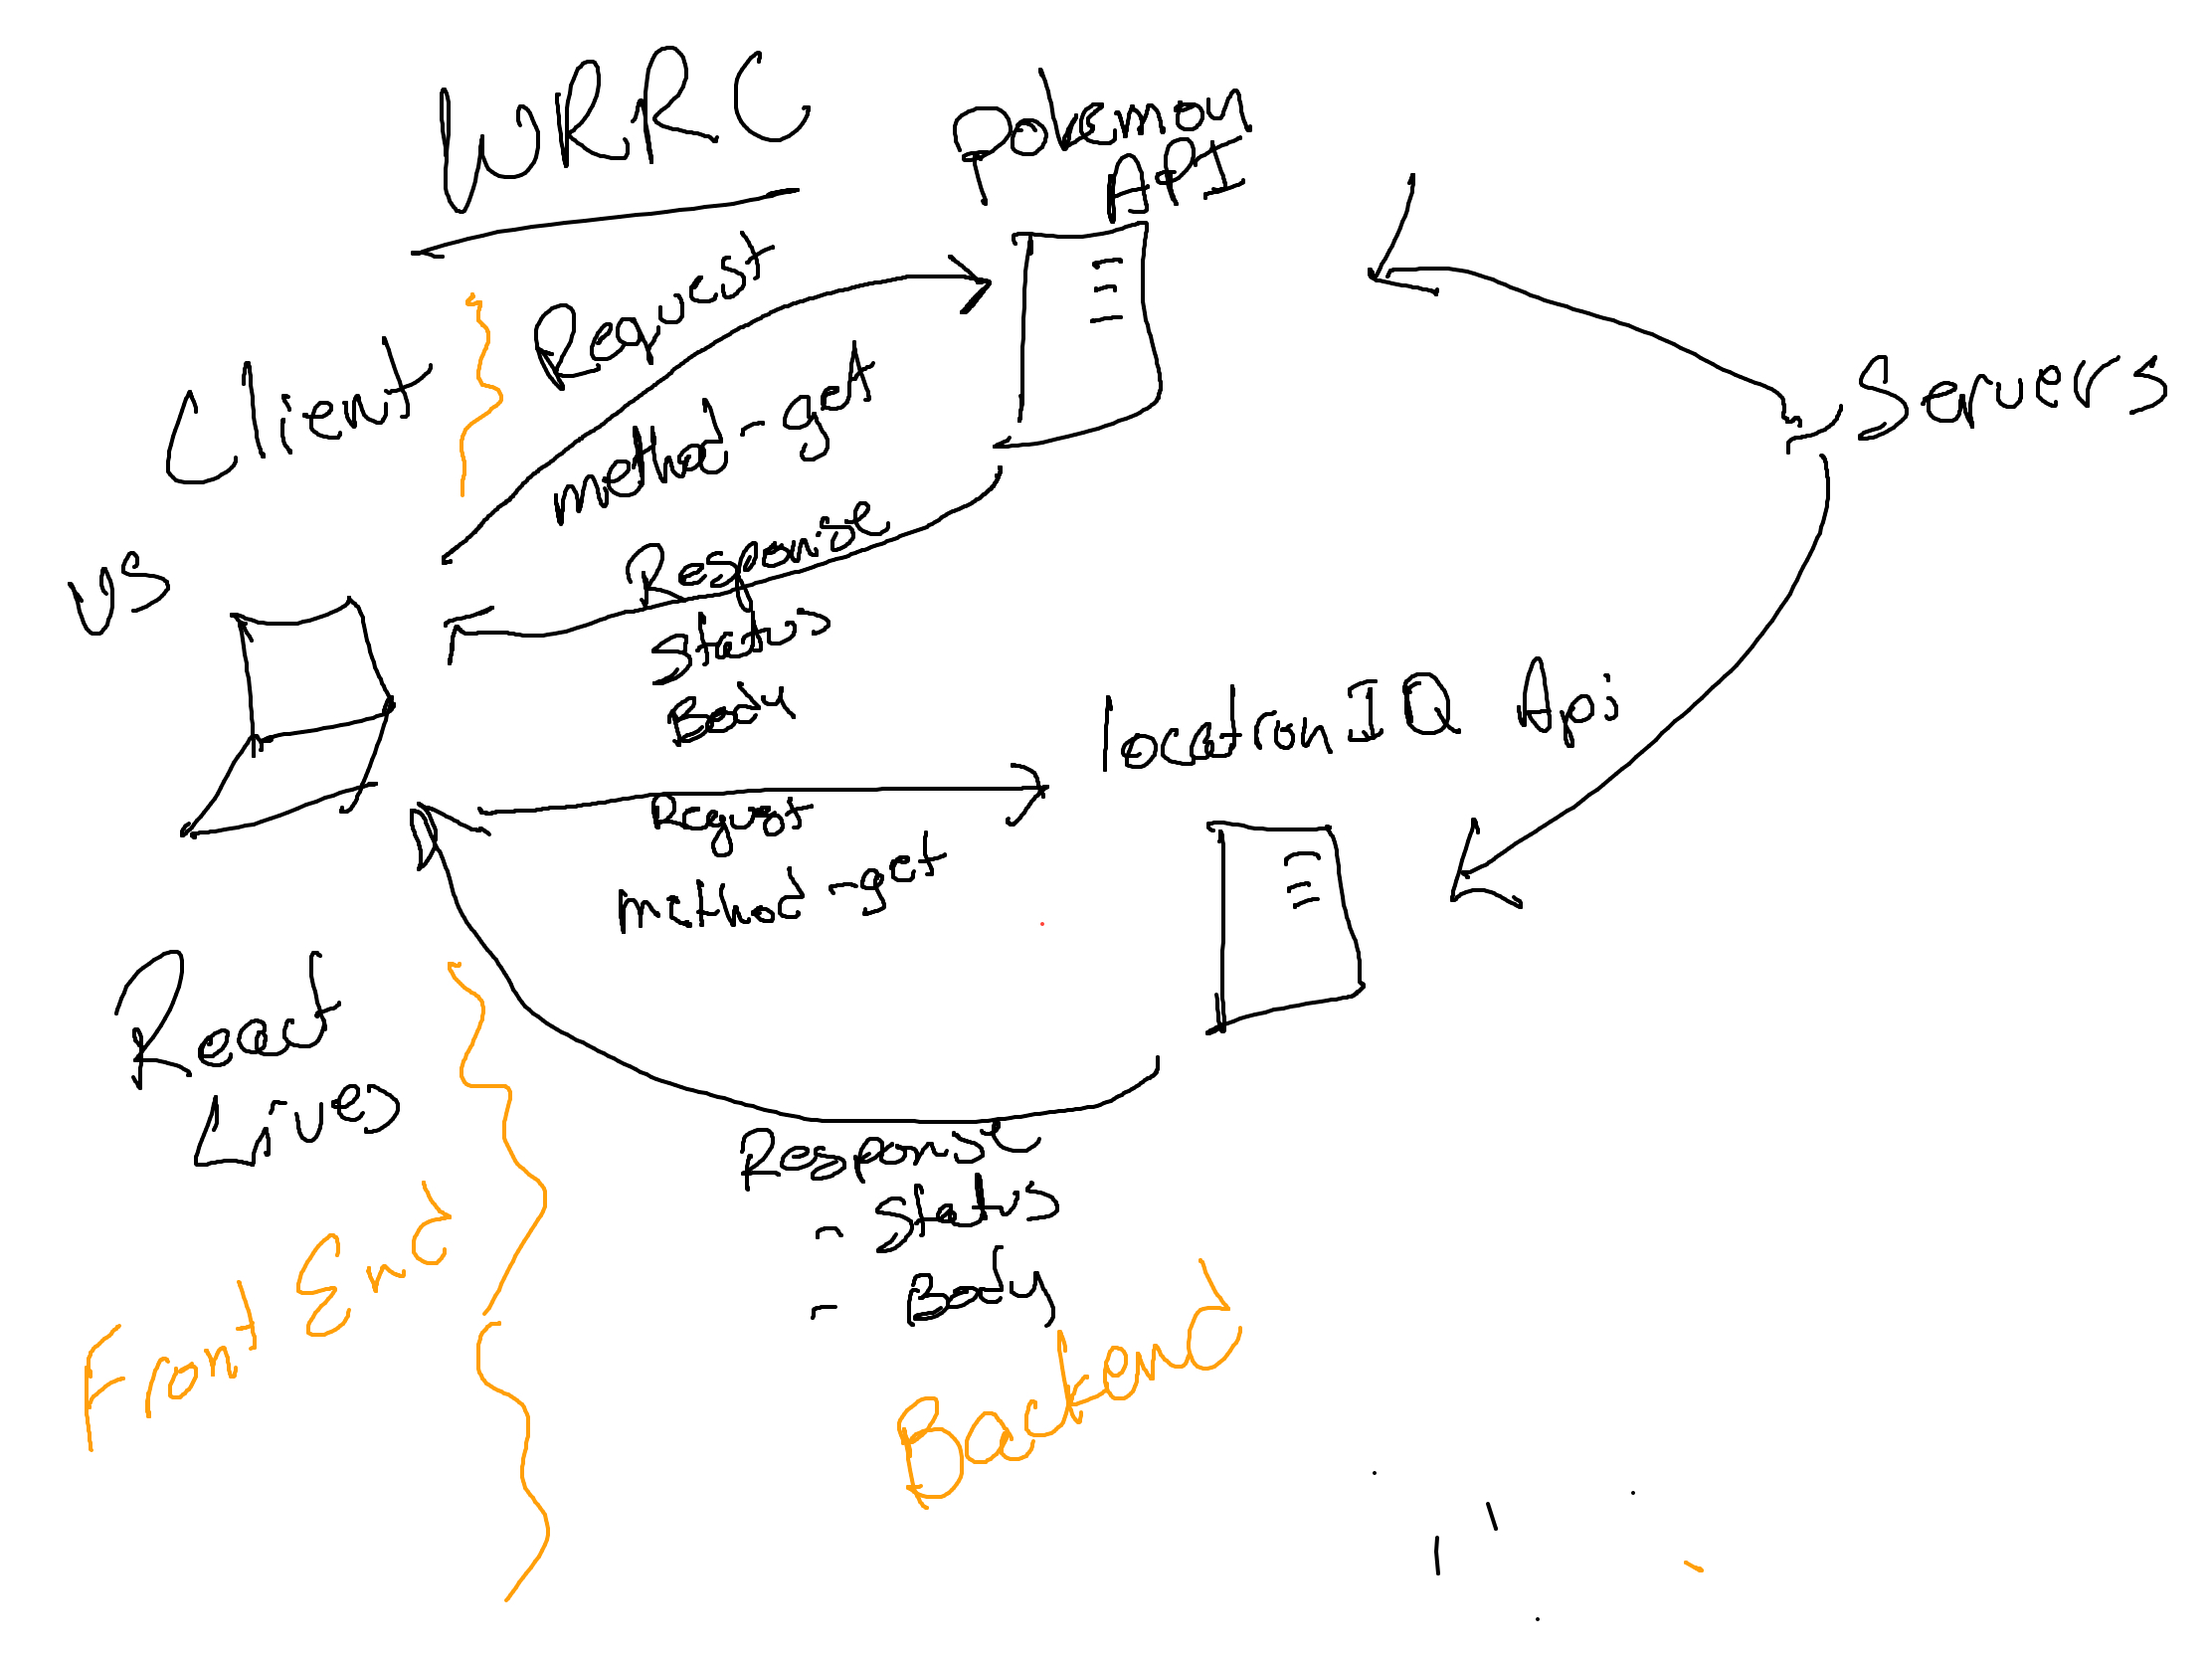 WRRC
pokemon
API
Request
Client
method-get
Servers
Response
US
Status
Body
locationIQ Api
Request
method-get
React
Lives
Response
- Status
- Body
Front End
Backend